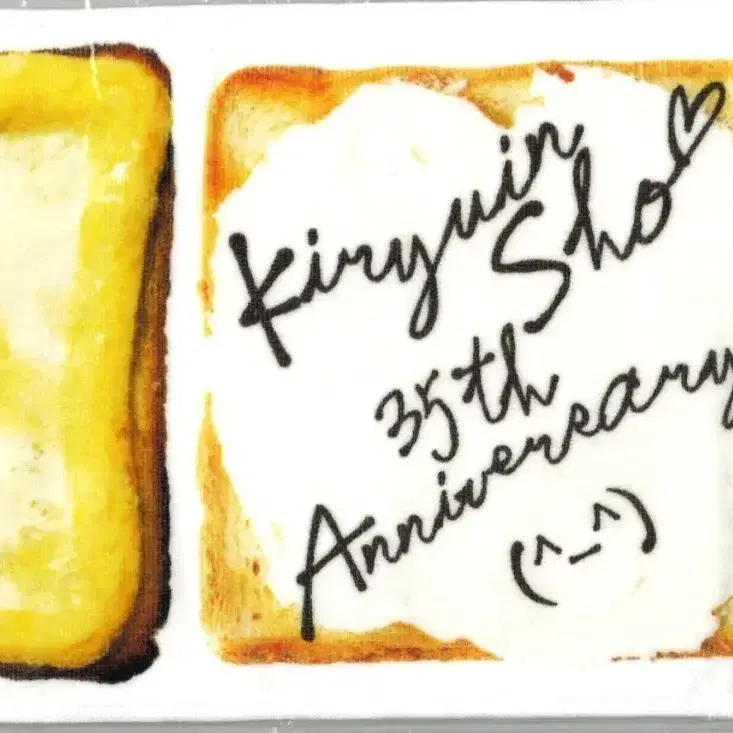 Kiryuin
Sho♡
35th
Anniversary
(^_^)